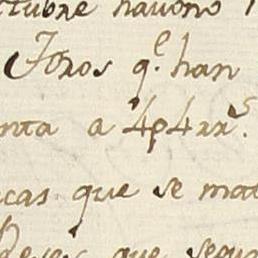 ctubre havono
Toros q.e han
nta a 4p4rr.s
cas que se mat
que segu